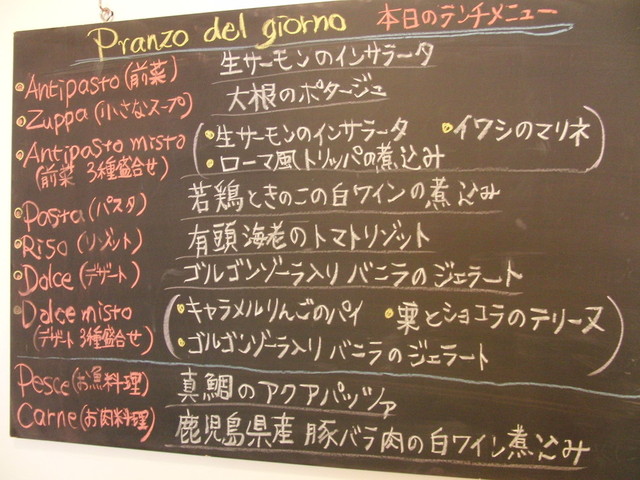 Pranzo del giorno 本日のランチメニュー
Antipasto (前菜) 生サーモンのインサラータ
Zuppa (小さなスープ) 大根のポタージュ
Antipasto misto (・生サーモンのインサラータ ・イワシのマリネ
(前菜 3種盛合せ) ・ローマ風トリッパの煮込み)
Pasta (パスタ) 若鶏ときのこの白ワインの煮込み
Riso (リゾット) 有頭海老のトマトリゾット
Dolce (デザート) ゴルゴンゾーラ入りバニラのジェラート
Dolce misto (・キャラメルりんごのパイ ・栗とショコラのテリーヌ
(デザート3種盛合せ) ・ゴルゴンゾーラ入りバニラのジェラート)
Pesce (お魚料理) 真鯛のアクアパッツァ
Carne (お肉料理) 鹿児島県産 豚バラ肉の白ワイン煮込み